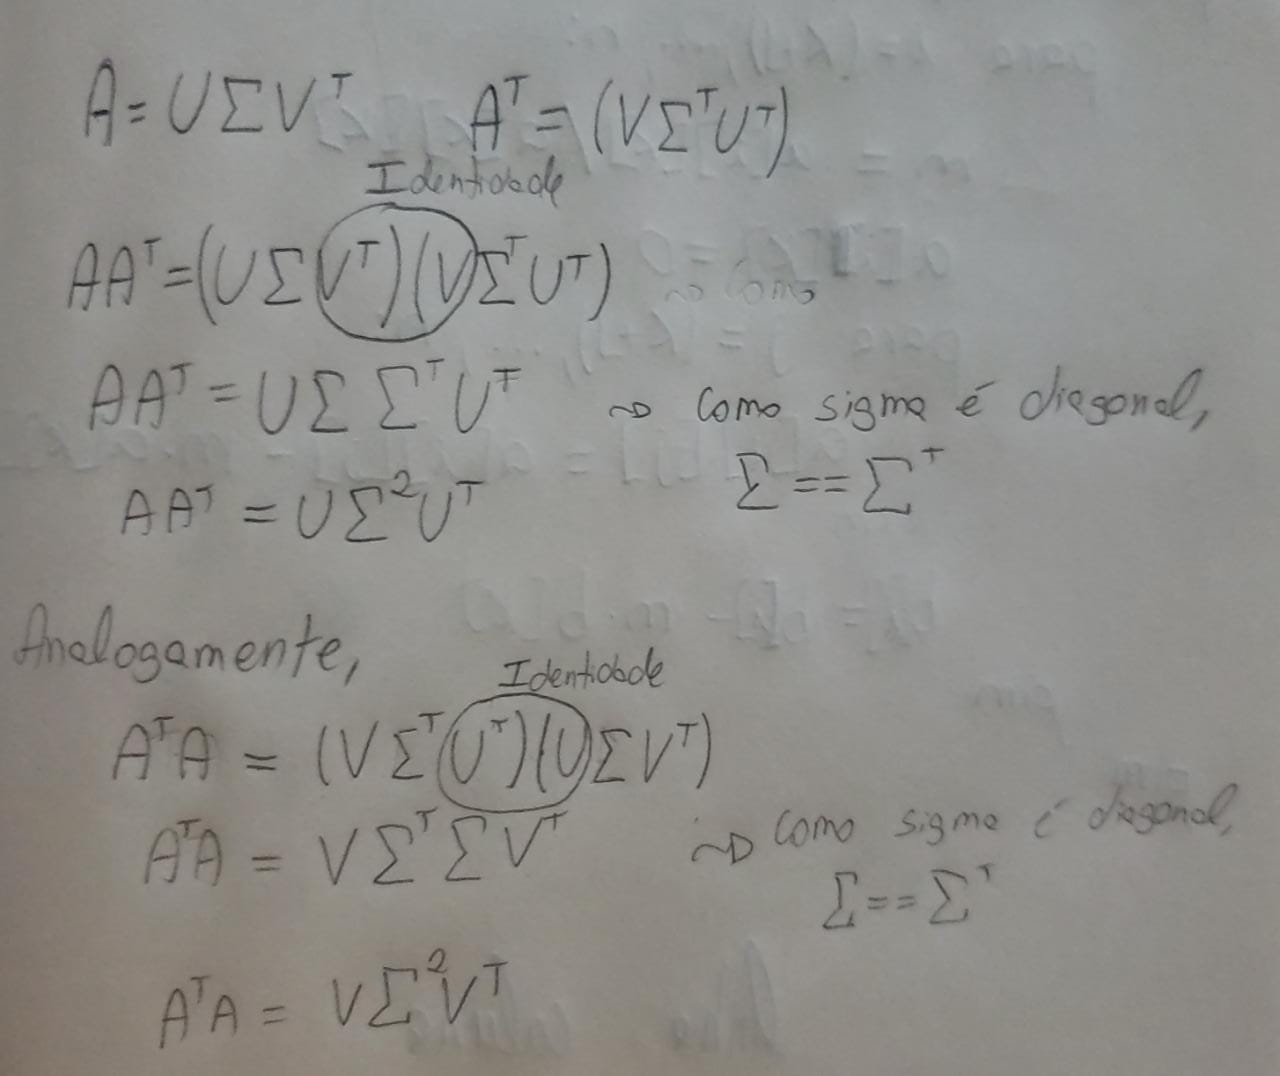 A = UΣVᵀ Aᵀ = (VΣᵀUᵀ)
Identidade
AAᵀ = (UΣVᵀ)(VΣᵀUᵀ) ~> Como
AAᵀ = UΣΣᵀUᵀ ~> Como sigma é diagonal,
Σ == Σᵀ
AAᵀ = UΣ²Uᵀ
Analogamente,
Identidade
AᵀA = (VΣᵀUᵀ)(UΣVᵀ)
AᵀA = VΣᵀΣVᵀ ~> Como sigma é diagonal,
Σ == Σᵀ
AᵀA = VΣ²Vᵀ